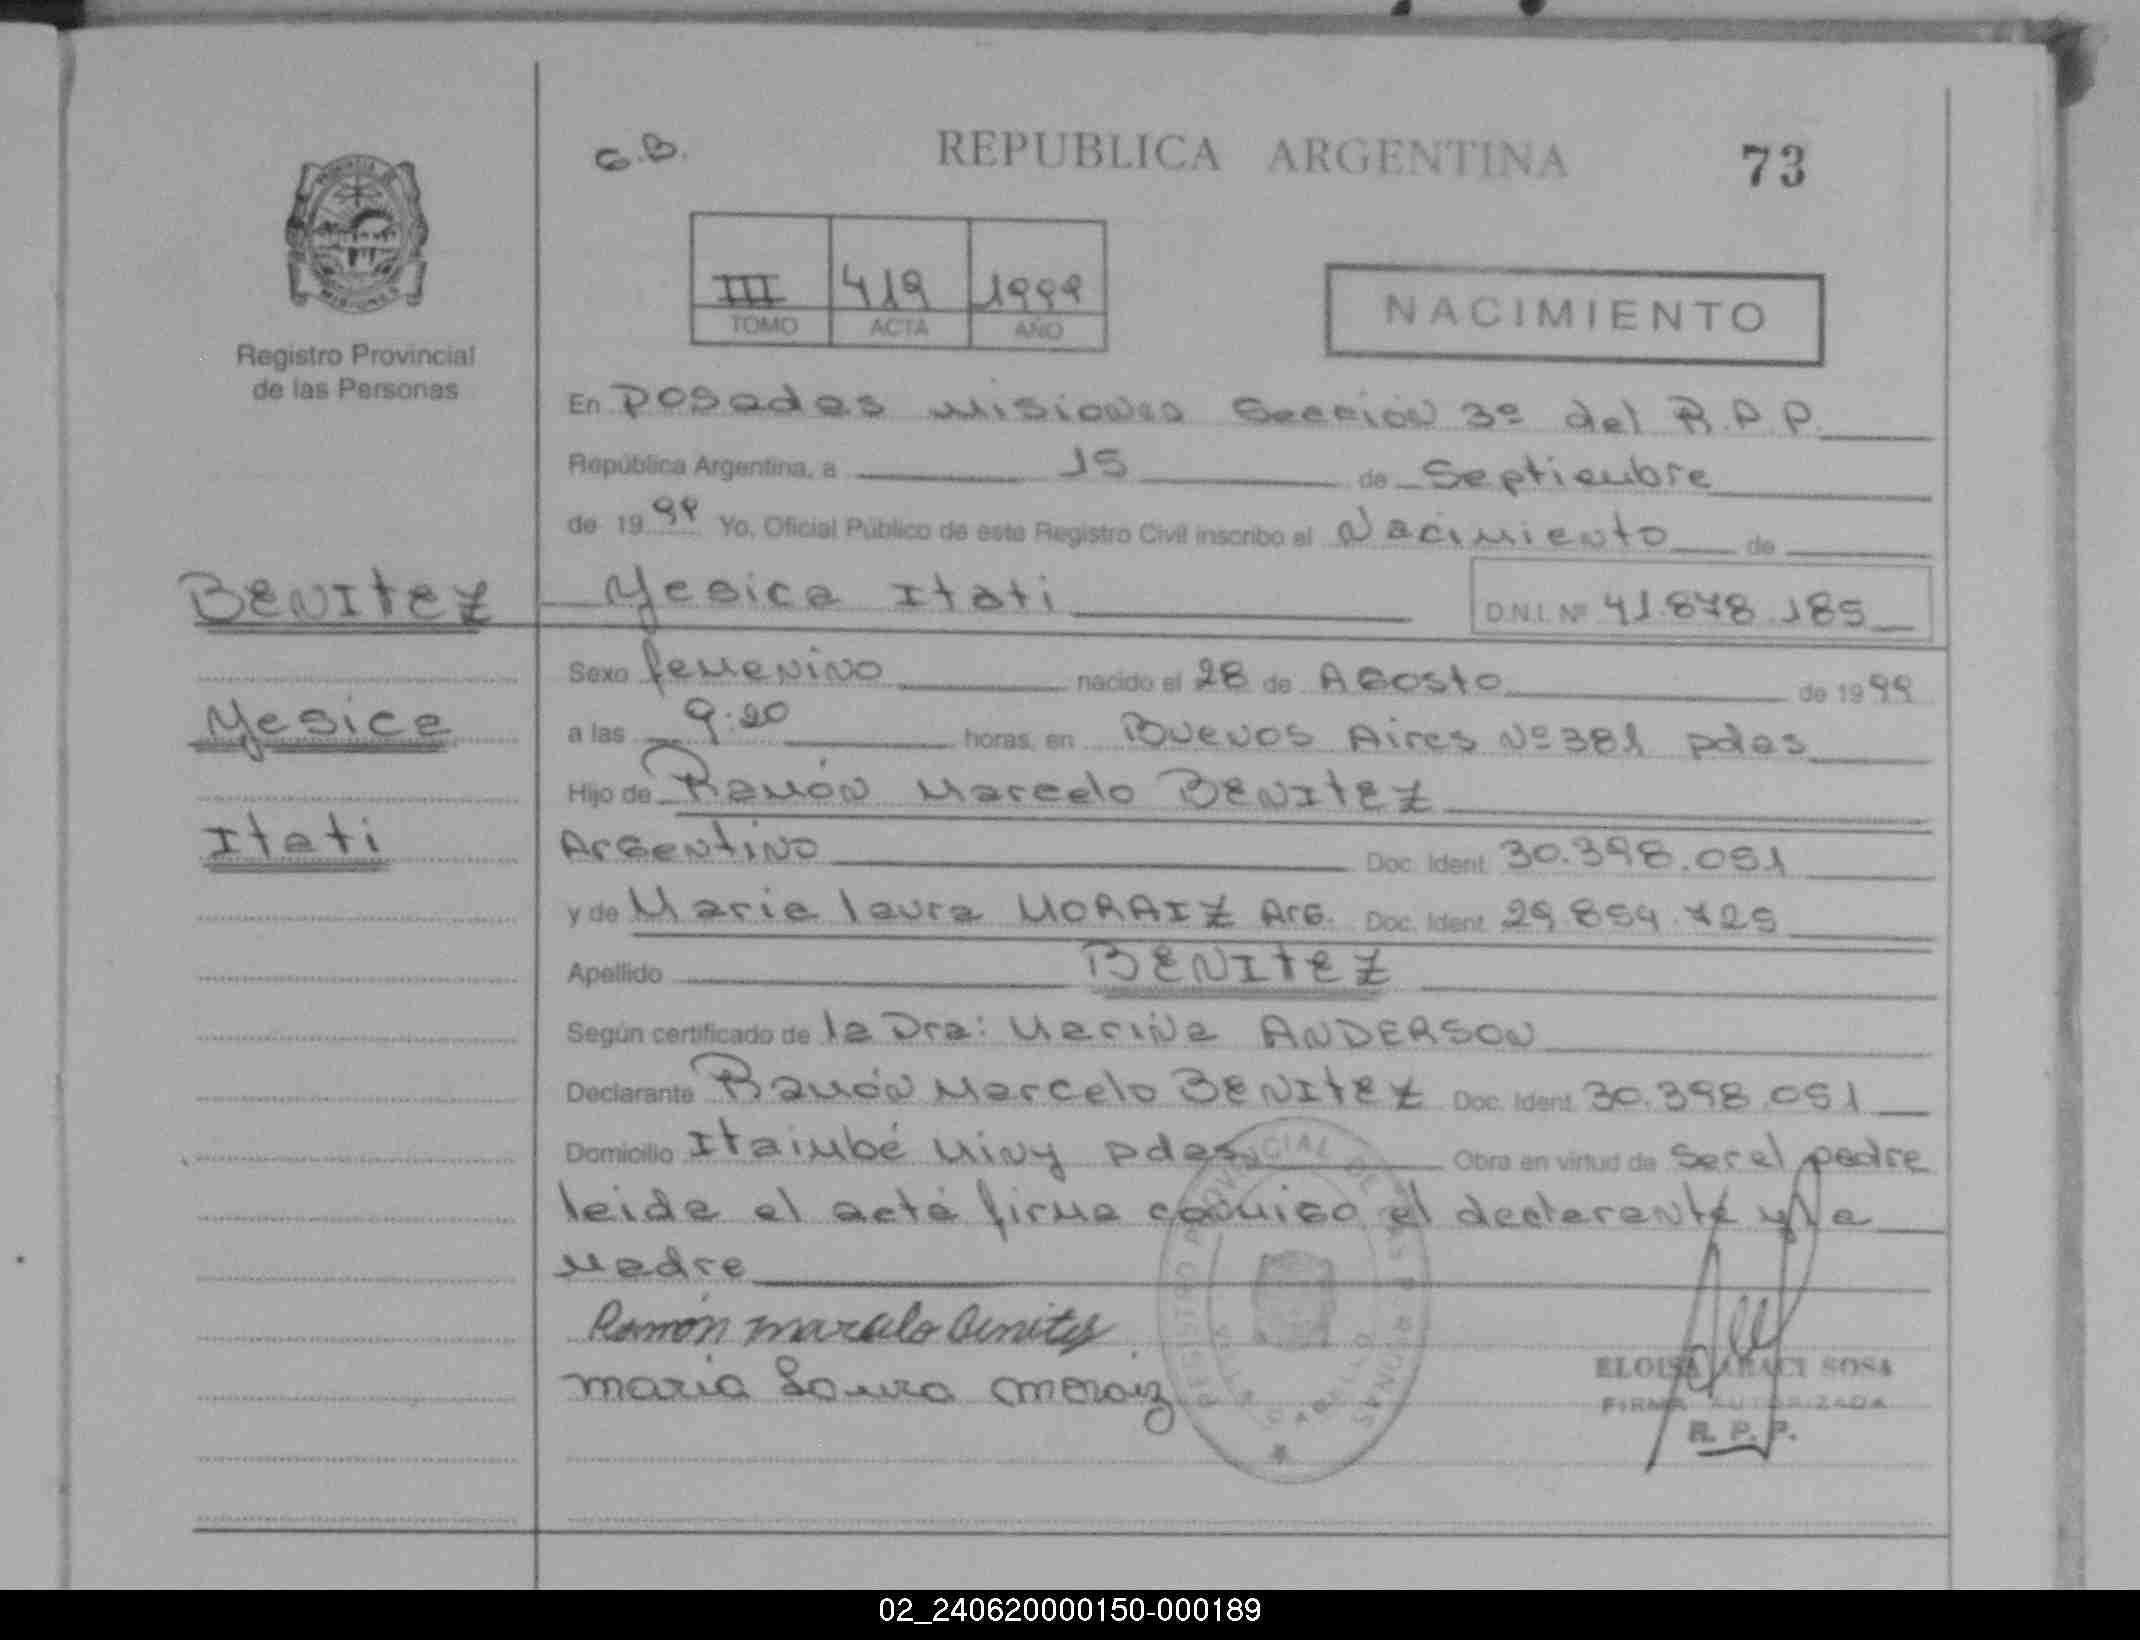 G.B.
REPUBLICA ARGENTINA
73
III 419 1999
TOMO ACTA AÑO
NACIMIENTO
PROVINCIA
MISIONES
Registro Provincial
de las Personas
En Posadas Misiones Sección 3º del R.P.P.
República Argentina, a 15 de Septiembre
de 1999 Yo, Oficial Público de este Registro Civil inscribo el Nacimiento de
BENITEZ Yesica Itati D.N.I. Nº 41.878.185
Sexo femenino nacido el 28 de Agosto de 1999
Yesica
a las 9:20 horas, en Buenos Aires Nº 381 pdas
Hijo de Ramón Marcelo BENITEZ
Itati
Argentino Doc. Ident. 30.398.051
y de Maria laura MORAIZ Arg. Doc. Ident. 29.854.725
Apellido BENITEZ
Según certificado de la Dra: Marina ANDERSON
Declarante Ramón Marcelo BENITEZ Doc. Ident. 30.398.051
Domicilio Itaimbé Miny pdas Obra en virtud de ser el padre
leida el acta firma conmigo el declarante y la
Madre
Ramón marcelo Benitez
maria Laura moraiz
REGISTRO PROVINCIAL DE LAS PERSONAS
ELOISA ARACI SOSA
FIRMA AUTORIZADA
R. P. P.
02_240620000150-000189